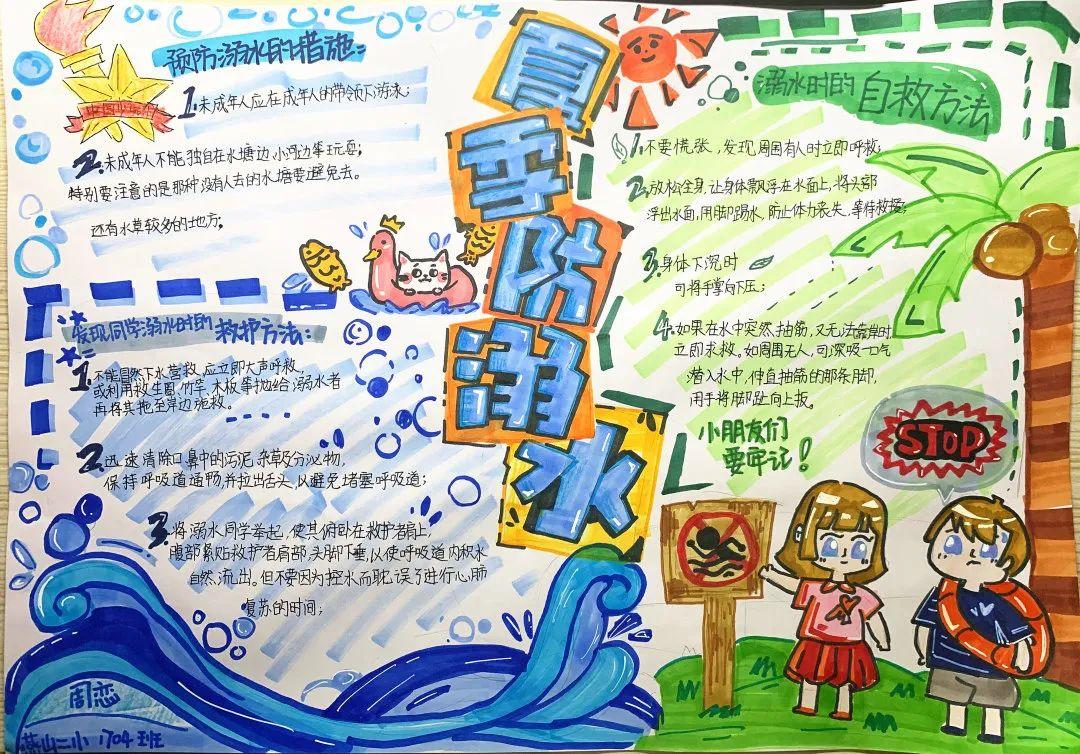 预防溺水的措施:
1.未成年人应在成年人的带领下游泳;
2.未成年人不能独自在水塘边、小河边等玩耍;
特别要注意的是那种没有人去的水塘要避免去。
还有水草较多的地方。
发现同学溺水时的救护方法:
1.不能冒然下水营救,应立即大声呼救,
或利用救生圈、竹竿、木板等抛给溺水者
再将其拖至岸边施救。
2.迅速清除口鼻中的污泥、杂草及分泌物,
保持呼吸道通畅,并拉出舌头,以避免堵塞呼吸道;
3.将溺水同学举起,使其俯卧在救护者肩上,
腹部紧贴救护者肩部,头脚下垂,以使呼吸道内积水
自然流出。但不要因为控水而耽误了进行心肺
复苏的时间;
周恋
燕山二小 1704班
夏季防溺水
溺水时的自救方法
1.不要慌张,发现周围有人时立即呼救;
2.放松全身,让身体飘浮在水面上,将头部
浮出水面,用脚踢水,防止体力丧失,等待救援;
3.身体下沉时
可将手掌向下压;
4.如果在水中突然抽筋,又无法靠岸时,
立即求救。如周围无人,可深吸一口气
潜入水中,伸直抽筋的那条脚,
用手将脚趾向上扳。
小朋友们
要牢记!
STOP